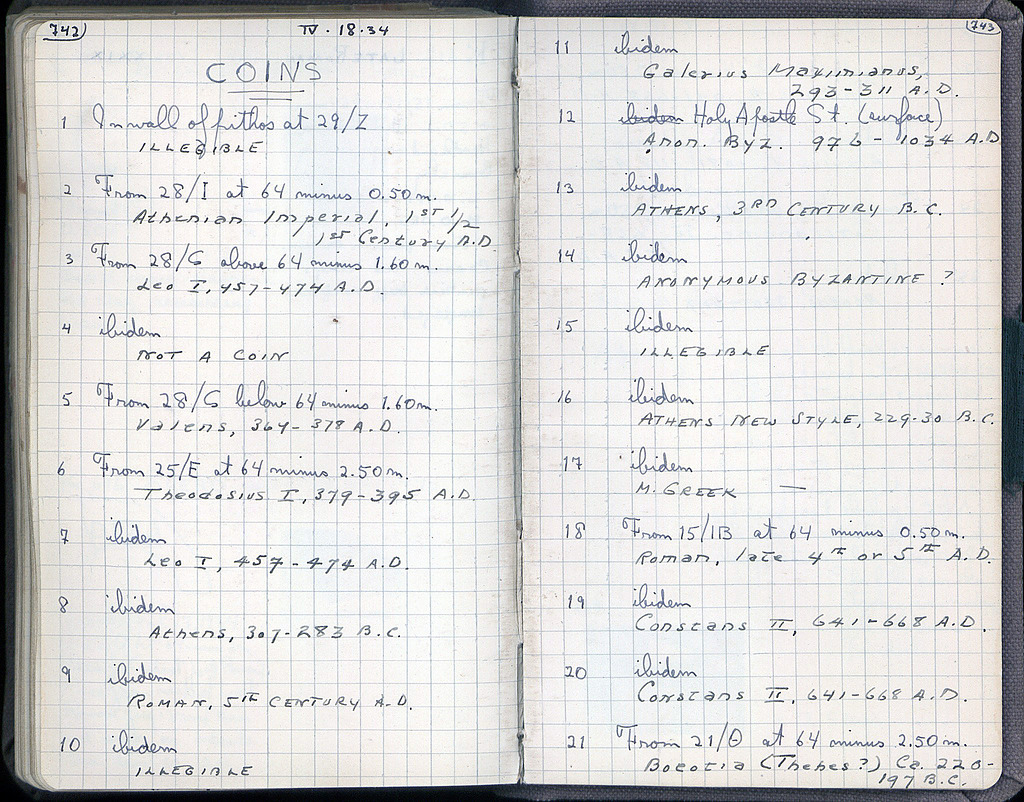 742
IV · 18 · 34
COINS
1 In wall of pithos at 29/Z
ILLEGIBLE
2 From 28/I at 64 minus 0.50 m.
Athenian Imperial, 1ST 1/2
1st Century A.D.
3 From 28/G above 64 minus 1.60 m.
Leo I, 457-474 A.D.
4 ibidem
NOT A COIN
5 From 28/G below 64 minus 1.60 m.
Valens, 364-378 A.D.
6 From 25/E at 64 minus 2.50 m.
Theodosius I, 379-395 A.D.
7 ibidem
Leo I, 457-474 A.D.
8 ibidem
Athens, 307-283 B.C.
9 ibidem
ROMAN, 5TH CENTURY A.D.
10 ibidem
ILLEGIBLE
743
11 ibidem
Galerius Maximianus,
293-311 A.D.
12 ibidem Holy Apostle St. (surface)
Anon. BYZ. 976 - 1034 A.D
13 ibidem
ATHENS, 3RD CENTURY B.C.
14 ibidem
ANONYMOUS BYZANTINE ?
15 ibidem
ILLEGIBLE
16 ibidem
ATHENS NEW STYLE, 229-30 B.C.
17 ibidem
M. GREEK —
18 From 15/IB at 64 minus 0.50 m.
Roman, late 4th or 5th A.D.
19 ibidem
Constans II, 641-668 A.D.
20 ibidem
Constans II, 641-668 A.D.
21 From 21/Θ at 64 minus 2.50 m.
Boeotia (Thebes?) Ca. 220-
197 B.C.